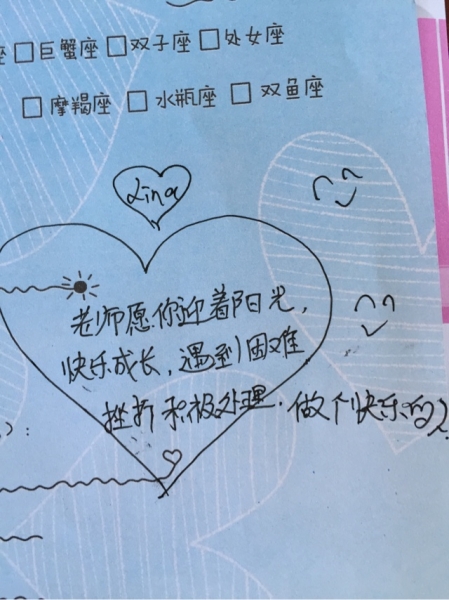 座 □ 巨蟹座 □ 双子座 □ 处女座
□ 摩羯座 □ 水瓶座 □ 双鱼座
Lina
老师愿你迎着阳光，
快乐成长，遇到困难
挫折积极处理．做个快乐的人
）：